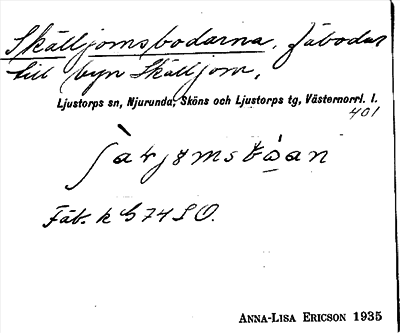 Skälljomsbodarna, fäbodar
till byn Skälljom,
Ljustorps sn, Njurunda, Sköns och Ljustorps tg, Västernorrl. l.
401
Fäb. k G 74 S O.
ANNA-LISA ERICSON 1935